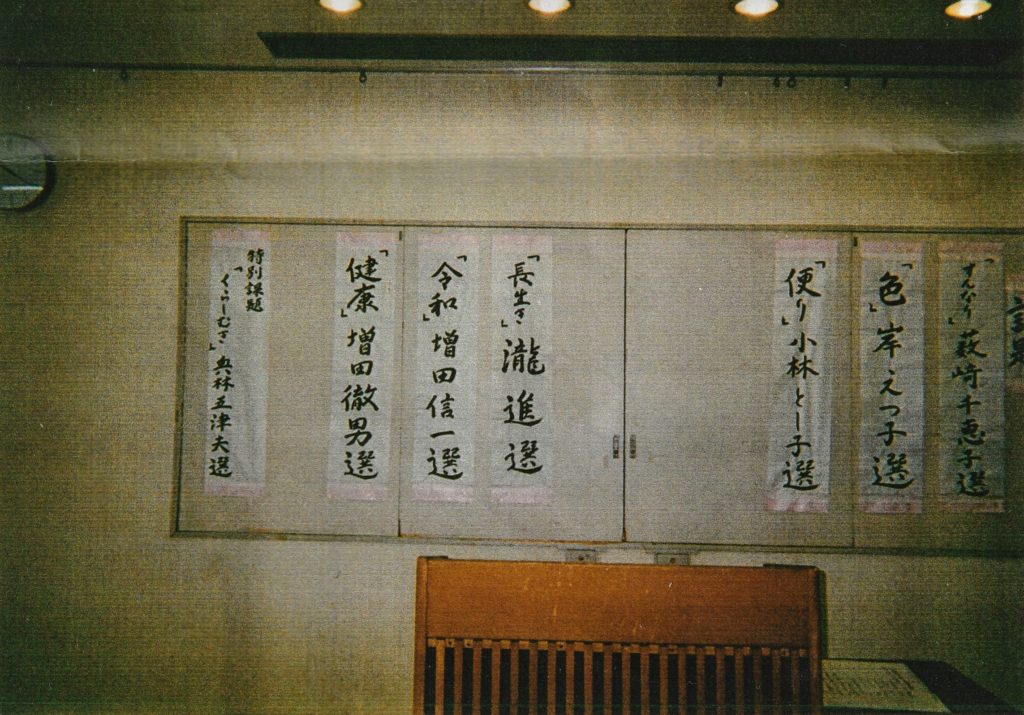 「すんなり」萩崎千恵子選
「色」岸えつ子選
「便り」小林とし子選
「長生き」瀧進選
「令和」増田信一選
「健康」増田徹男選
特別課題
「くらしむき」林五津夫選